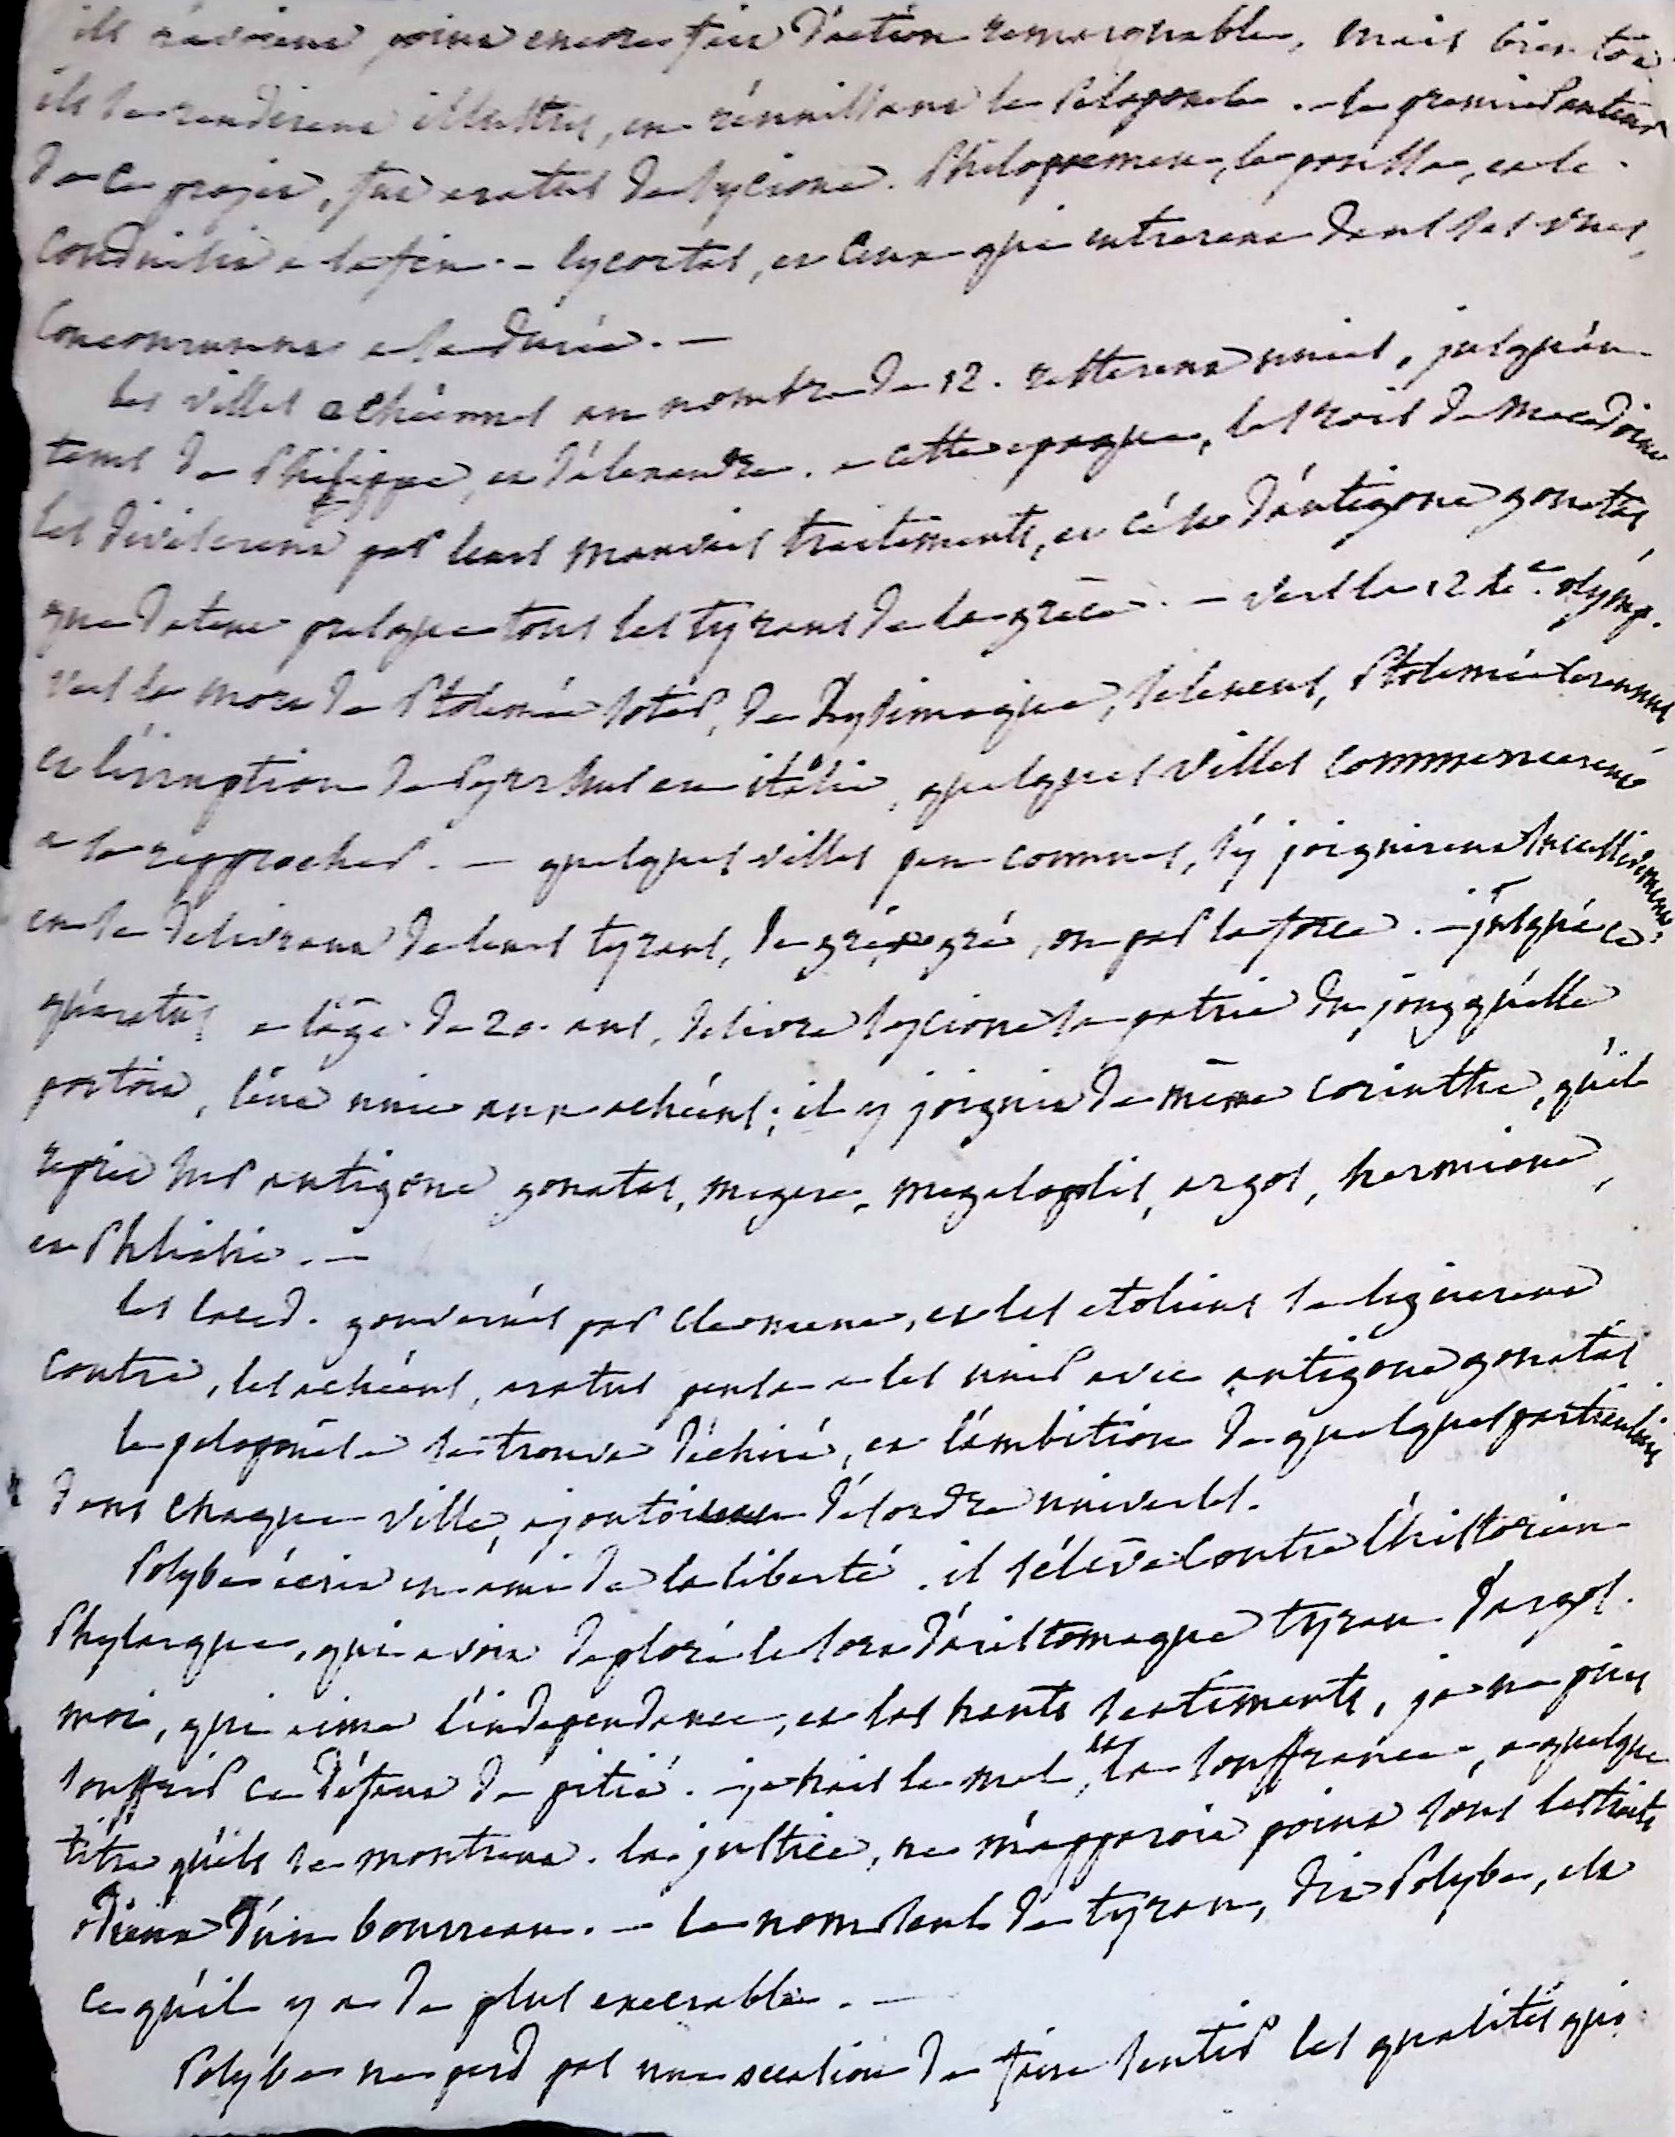 ils n'avoient point encore fait d'action remarquable, mais bientôt
ils se rendirent illustres, en réunissant le Péloponèse. – le premier auteur
de ce projet, fut aratus de sycione. Philopoemen, le poussa, et le
conduisit a sa fin. – lycortas, et ceux qui entrerent dans ses vues,
concoururent a sa durée. –
les villes acheennes au nombre de 12. resterent unies, jusqu'au
tems de Philippe, et d'alexandre. a cette epoque, les rois de macedoine
les diviserent par leurs mauvais traitements, et c'est d'antigone gonatas,
que datent presque tous les tyrans de la grèce. – vers la 124e. olymp.
vers la mort de Ptolemée soter, de lysimaque, seleucus, Ptolemée ceraunus
et l'irruption de Pyrrhus en italie, quelques villes commencerent
a se rapprocher. – quelques villes peu connues, s'y joignirent successivement,
en se delivrant de leurs tyrans, de gré a gré, ou par la force. – jusqu'a ce
qu'aratus a l'âge de 20. ans, delivra sycione sa patrie du joug qu'elle
portoit, l'eut unie aux achéens; il y joignit de même corinthe, qu'il
reprit sur antigone gonatas, megare, megalopolis, argos, hermione,
et Phliasie. –
les laced. gouvernés par cleomene, et les etoliens se liguerent
contre, les achéens, aratus pensa a les unir avec antigone gonatas
le peloponèse se trouva déchiré, et l'ambition de quelques particuliers
dans chaque ville, ajoutoit au désordre universel.
Polybe écrit en ami de la liberté. il s'élève contre l'historien
Phylarque, qui avoit deploré le sort d'aristomaque tyran d'argos.
moi, qui aime l'independance, et les hauts sentiments, je ne puis
souffrir ce défaut de pitié. – je hais le mal, et la souffrance, a quelque
titre qu'ils se montrent. la justice, ne m'apparoit point sous les traits
odieux d'un bourreau. – le nom seul de tyran, dit Polybe, est
ce qu'il y a de plus execrable. –
Polybe ne perd pas une occasion de faire sentir les qualités qui